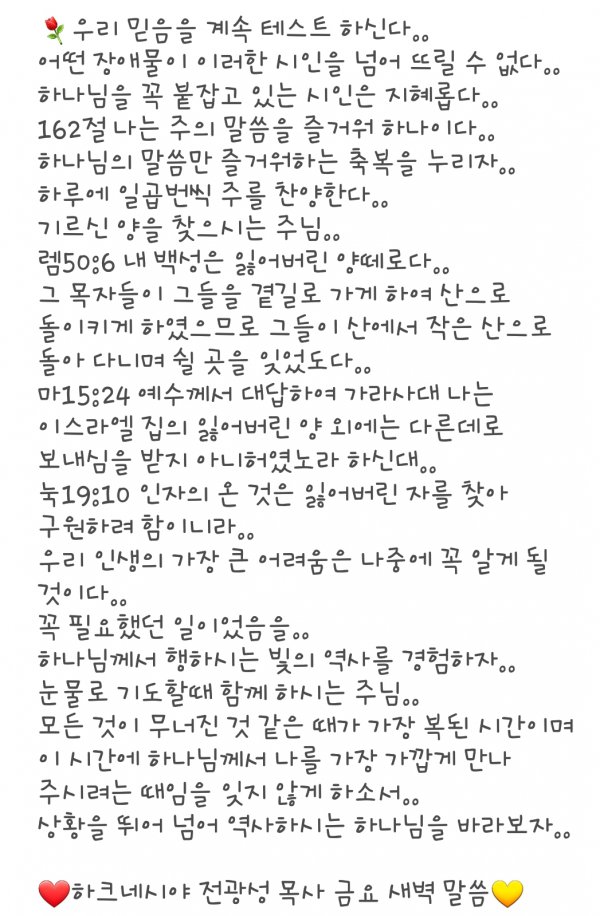 🌹우리 믿음을 계속 테스트 하신다..
어떤 장애물이 이러한 시인을 넘어 뜨릴 수 없다..
하나님을 꼭 붙잡고 있는 시인은 지혜롭다..
162절 나는 주의 말씀을 즐거워 하나이다..
하나님의 말씀만 즐거워하는 축복을 누리자..
하루에 일곱번씩 주를 찬양한다..
기르신 양을 찾으시는 주님..
렘50:6 내 백성은 잃어버린 양떼로다..
그 목자들이 그들을 곁길로 가게 하여 산으로
돌이키게 하였으므로 그들이 산에서 작은 산으로
돌아 다니며 쉴 곳을 잊었도다..
마15:24 예수께서 대답하여 가라사대 나는
이스라엘 집의 잃어버린 양 외에는 다른데로
보내심을 받지 아니허였노라 하신대..
눅19:10 인자의 온 것은 잃어버린 자를 찾아
구원하려 함이니라..
우리 인생의 가장 큰 어려움은 나중에 꼭 알게 될
것이다..
꼭 필요했던 일이었음을..
하나님께서 행하시는 빛의 역사를 경험하자..
눈물로 기도할때 함께 하시는 주님..
모든 것이 무너진 것 같은 때가 가장 복된 시간이며
이 시간에 하나님께서 나를 가장 가깝게 만나
주시려는 때임을 잊지 않게 하소서..
상황을 뛰어 넘어 역사하시는 하나님을 바라보자..
❤️하크네시야 전광성 목사 금요 새벽 말씀💛